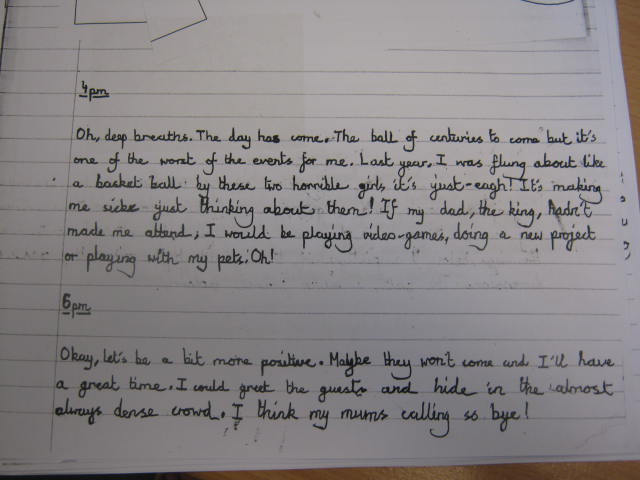 4pm
Oh, deep breaths. The day has come. The ball of centuries to come but it's
one of the worst of the events for me. Last year, I was flung about like
a basket ball by these two horrible girls, it's just-eagh! It's making
me sick just thinking about them! If my dad, the king, hadn't
made me attend, I would be playing video-games, doing a new project
or playing with my pets. Oh!
6pm
Okay, let's be a bit more positive. Maybe they won't come and I'll have
a great time. I could greet the guests and hide in the almost
always dense crowd. I think my mums calling so bye!